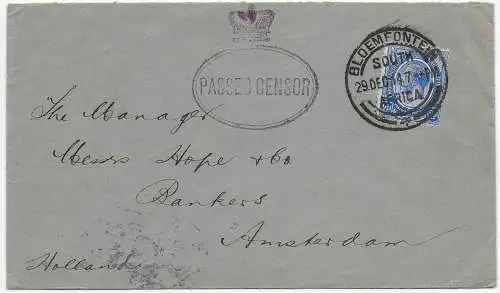 PASSED CENSOR
BLOEMFONTEIN
SOUTH
29 DEC 14
AFRICA
The Manager
Messrs Hope & Co
Bankers
Amsterdam
Holland